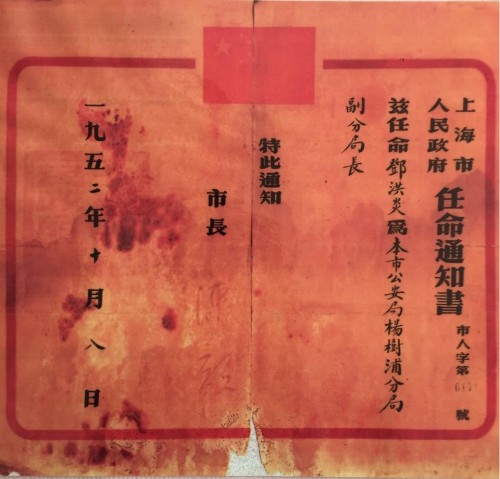 上海市
人民政府
任命通知書
市人字第 號
兹任命鄧洪炎爲本市公安局楊樹浦分局
副分局長
特此通知
市長
一九五二年十月八日